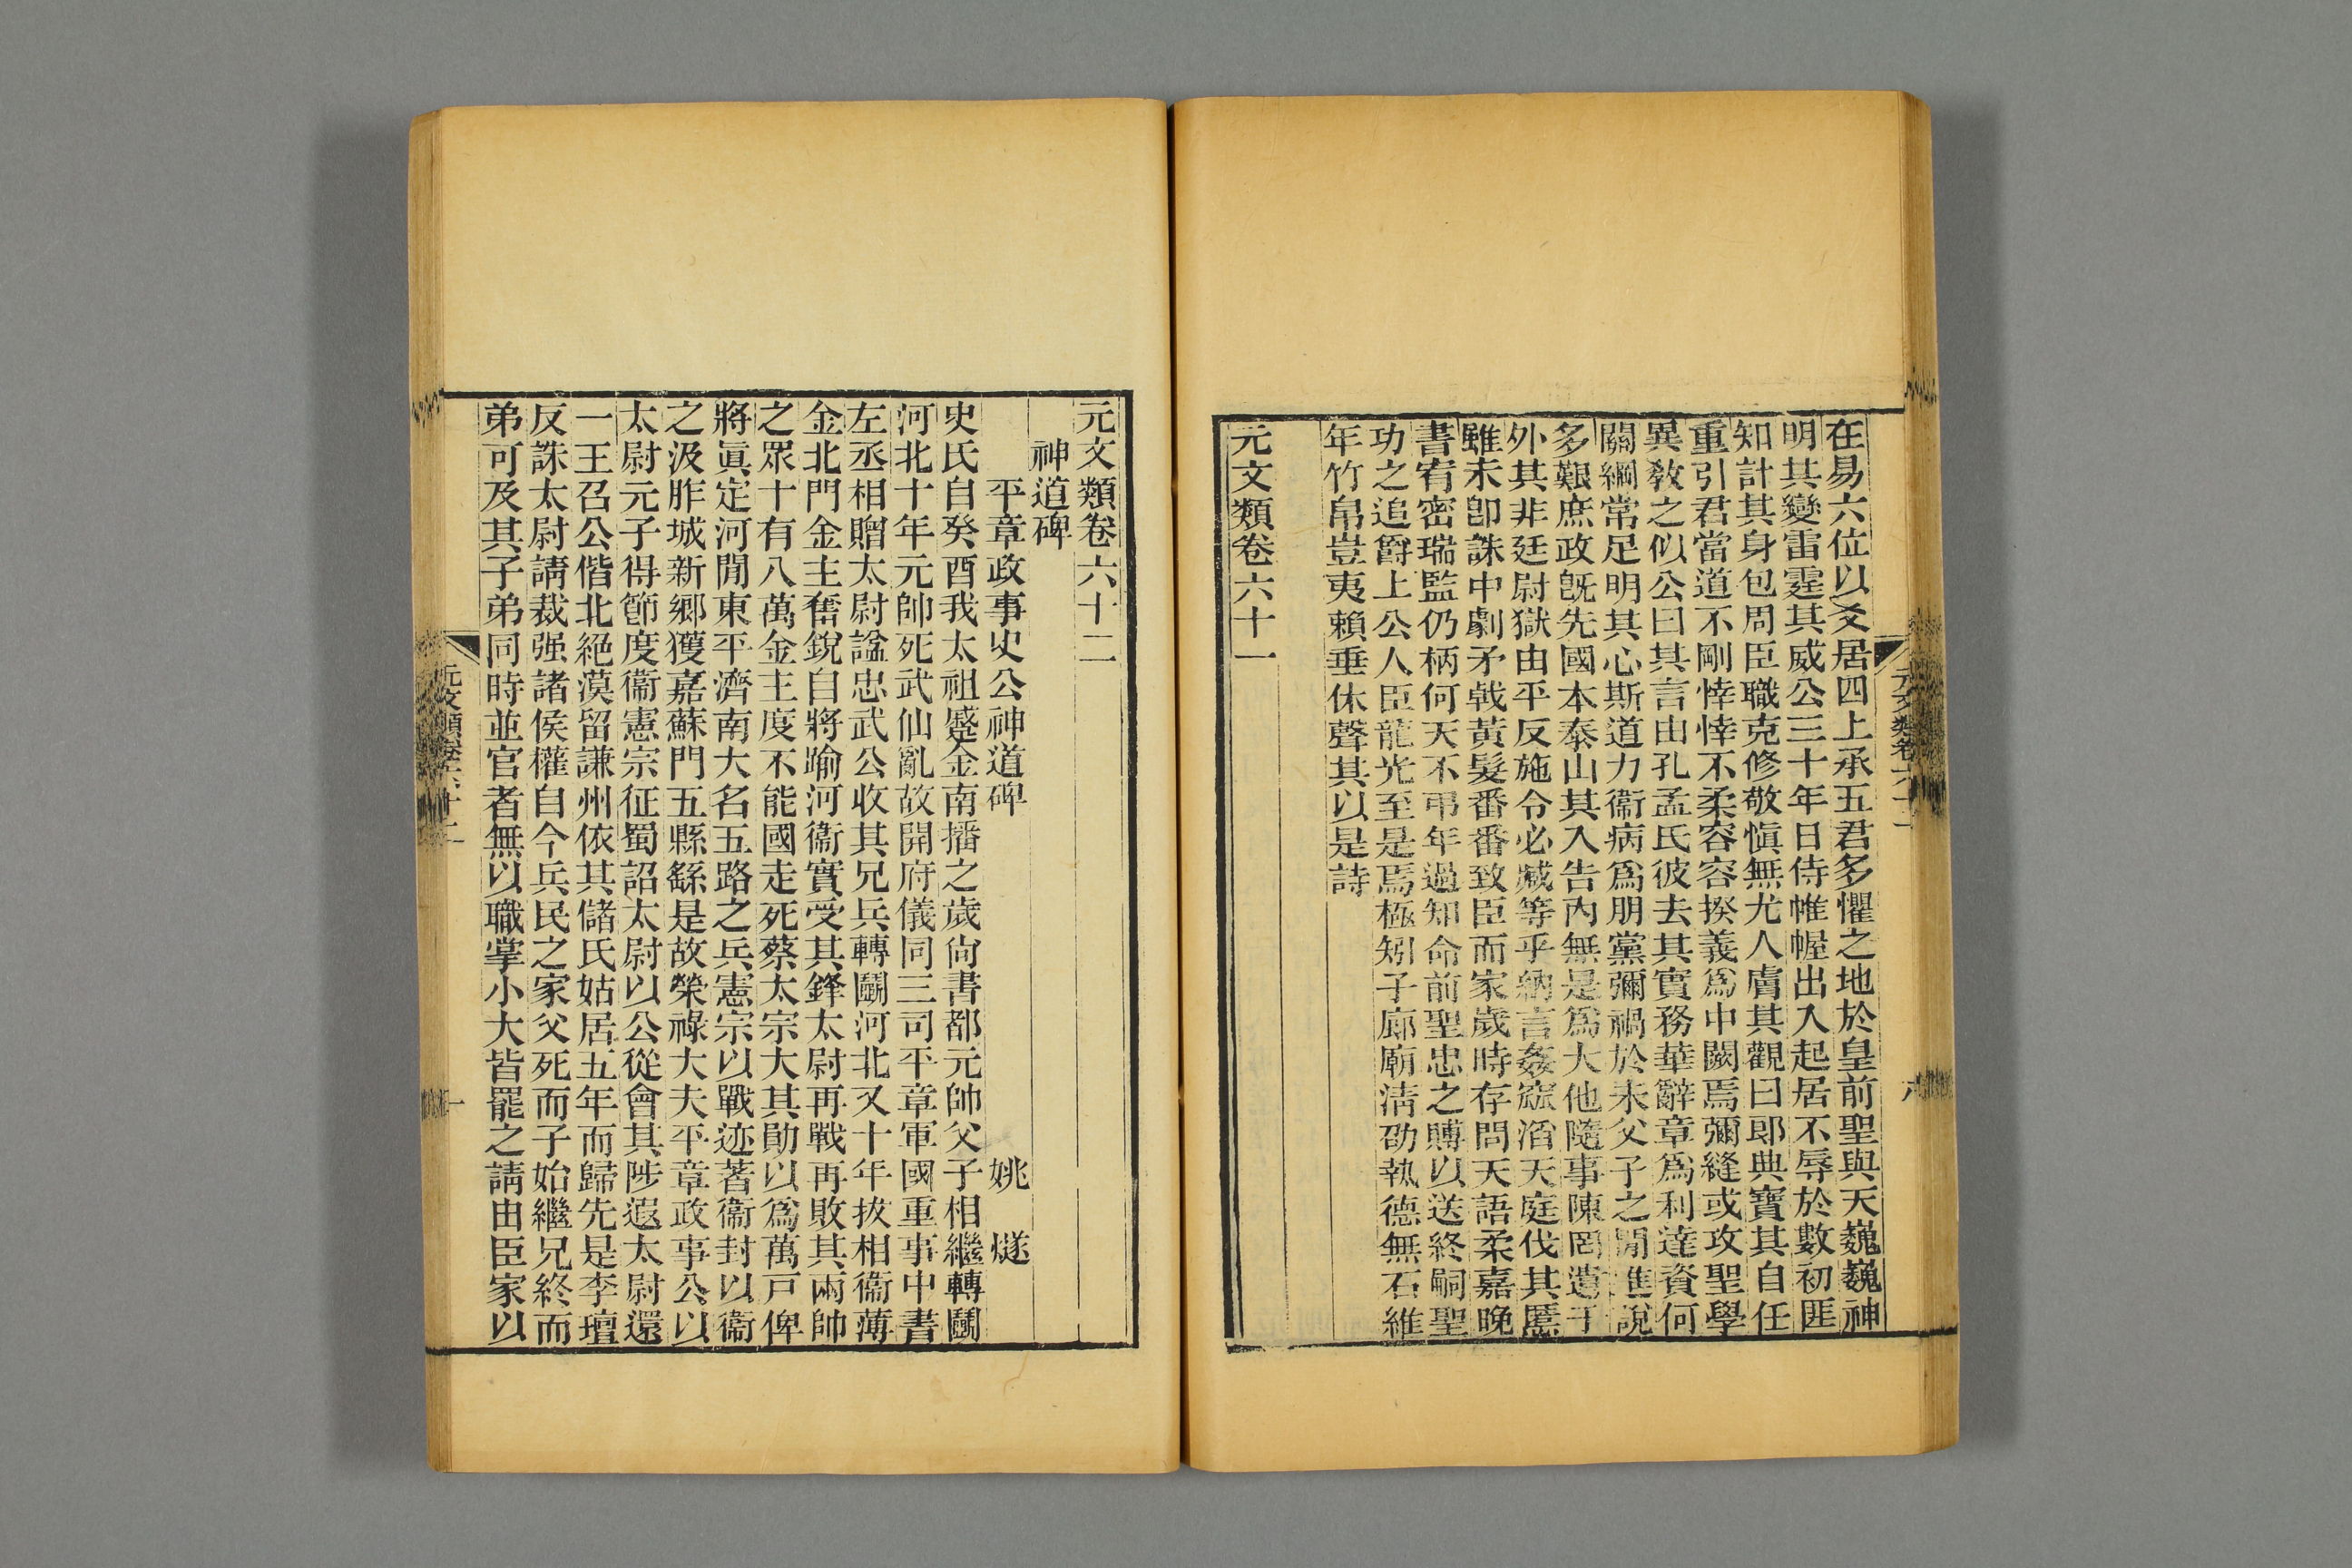 在易六位以爻居四上承五君多懼之地於皇前聖與天巍巍神
明其變雷霆其威公三十年日侍帷幄出入起居不辱於數初匪
知計其身包周臣職克修敬愼無尤人膚其觀曰郎典寶其自任
重引君當道不剛悻悻不柔容容揆義爲中闕焉彌縫或攻聖學
異敎之似公曰其言由孔孟氏彼去其實務華辭章爲利達資何
關綱常足明其心斯道力衞病爲朋黨彌禍於未父子之閒進說
多艱庶政旣先國本泰山其入告內無是爲大他隨事陳罔遺于
外其非廷尉獄由平反施令必臧等乎納言姦窾滔天庭伐其慝
雖未卽誅中劇矛戟黃髮番番致臣而家歲時存問天語柔嘉晚
書宥密瑞監仍柄何天不弔年過知命前聖忠之賻以送終嗣聖
功之追爵上公人臣龍光至是焉極矧子廊廟淸劭執德無石維
年竹帛豈夷賴垂休聲其以是詩
元文類卷六十一
元文類卷六十二
神道碑
平章政事史公神道碑 姚燧
史氏自癸酉我太祖蹙金南播之歲尙書都元帥父子相繼轉鬭
河北十年元帥死武仙亂故開府儀同三司平章軍國重事中書
左丞相贈太尉諡忠武公收其兄兵轉鬭河北又十年拔相衞薄
金北門金主奮銳自將踰河衞實受其鋒太尉再戰再敗其兩帥
之眾十有八萬金主度不能國走死蔡太宗大其勛以爲萬戸俾
將眞定河閒東平濟南大名五路之兵憲宗以戰迹著衞封以衞
之汲胙城新鄉獲嘉蘇門五縣繇是故榮祿大夫平章政事公以
太尉元子得節度衞憲宗征蜀詔太尉以公從會其陟遐太尉還
一王召公偕北絕漠留謙州依其儲氏姑居五年而歸先是李璮
反誅太尉請裁强諸侯權自今兵民之家父死而子始繼兄終而
弟可及其子弟同時並官者無以職掌小大皆罷之請由臣家以
元文類卷六十二
一